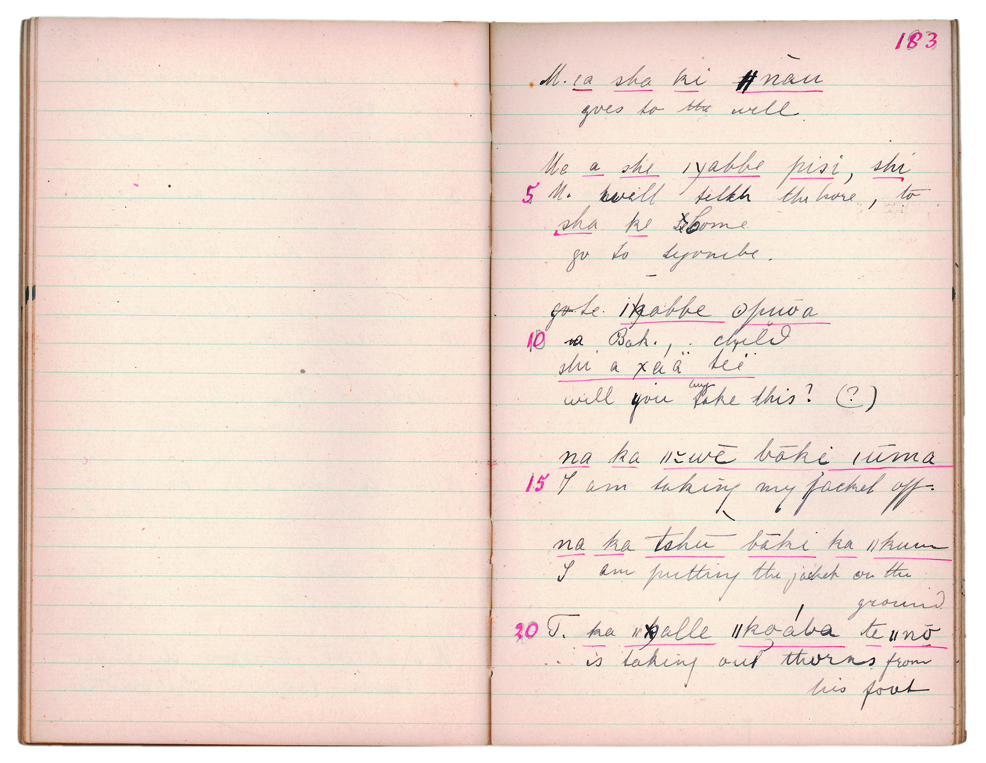 183
M. ca sha ki ǁnau
goes to the well
Me a she ǀχabbe pisi, shi
5 M. will fetch the bore, to
sha ke
go to
gote ʘpwōa
10 a Bok., . child
shi a xäā tēë
will you buy take this? (?)
na ka bāki ǀūma
15 I am taking my jacket off.
na ka tshū bāki ka ǁkum
I am putting the jacket on the
ground
20 T. ka te ǁnō
is taking out thorns from
his foot